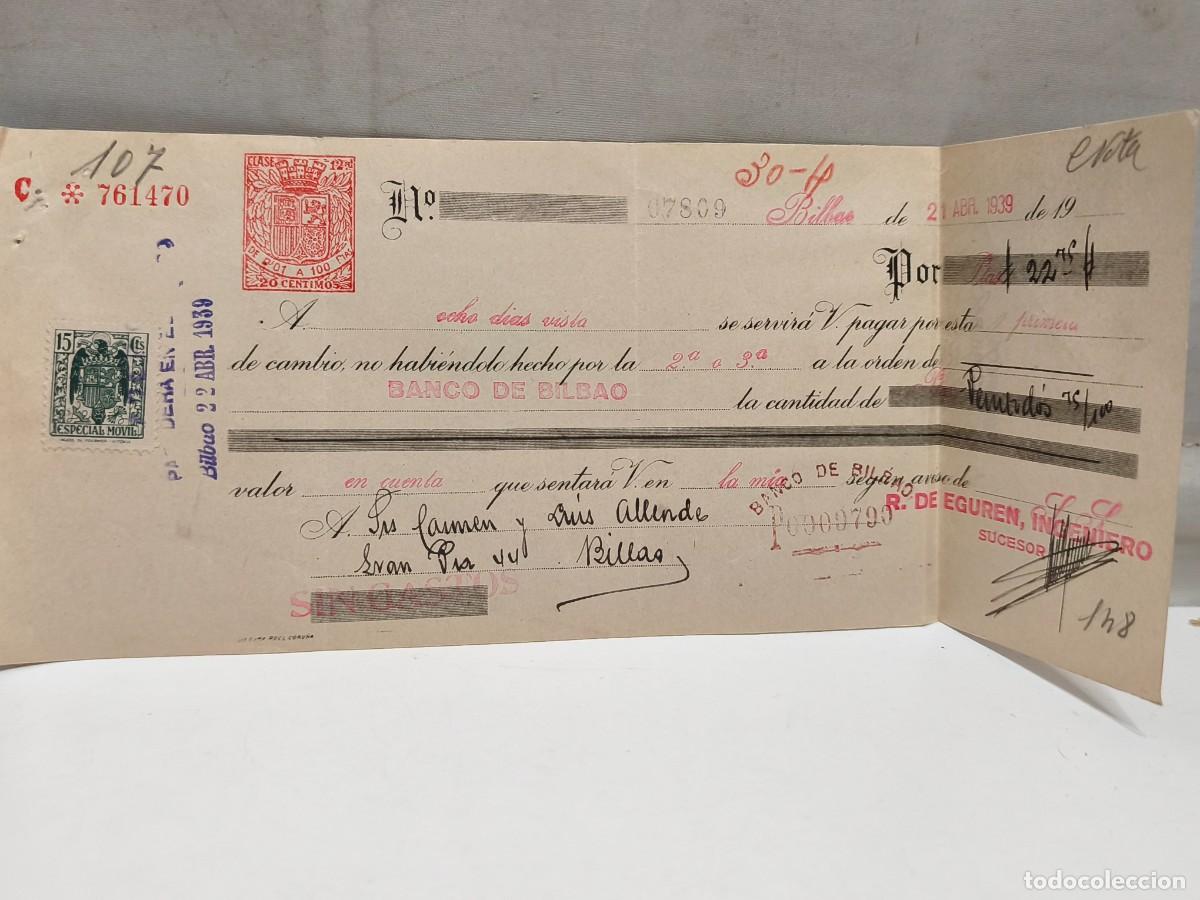 107
C * 761470
CLASE 12ª
DE 2'01 A 100 PTAS
20 CENTIMOS
Nº 07809
30-4
Bilbao de 21 ABR. 1939 de 19
Por 22 75
A ocho días vista se servirá V. pagar por esta primera
de cambio, no habiéndolo hecho por la 2.ª o 3.ª a la orden de
BANCO DE BILBAO la cantidad de Veintidós 75/100
valor en cuenta que sentará V. en la mía según aviso de
A Srs Carmen y Luis Allende
Gran Via 44 Bilbao
SIN GASTOS
BANCO DE BILBAO
P0000790
R. DE EGUREN, INGENIERO
SUCESOR
148
15 Cts
ESPECIAL MOVIL
Bilbao 22 ABR. 1939
todocoleccion